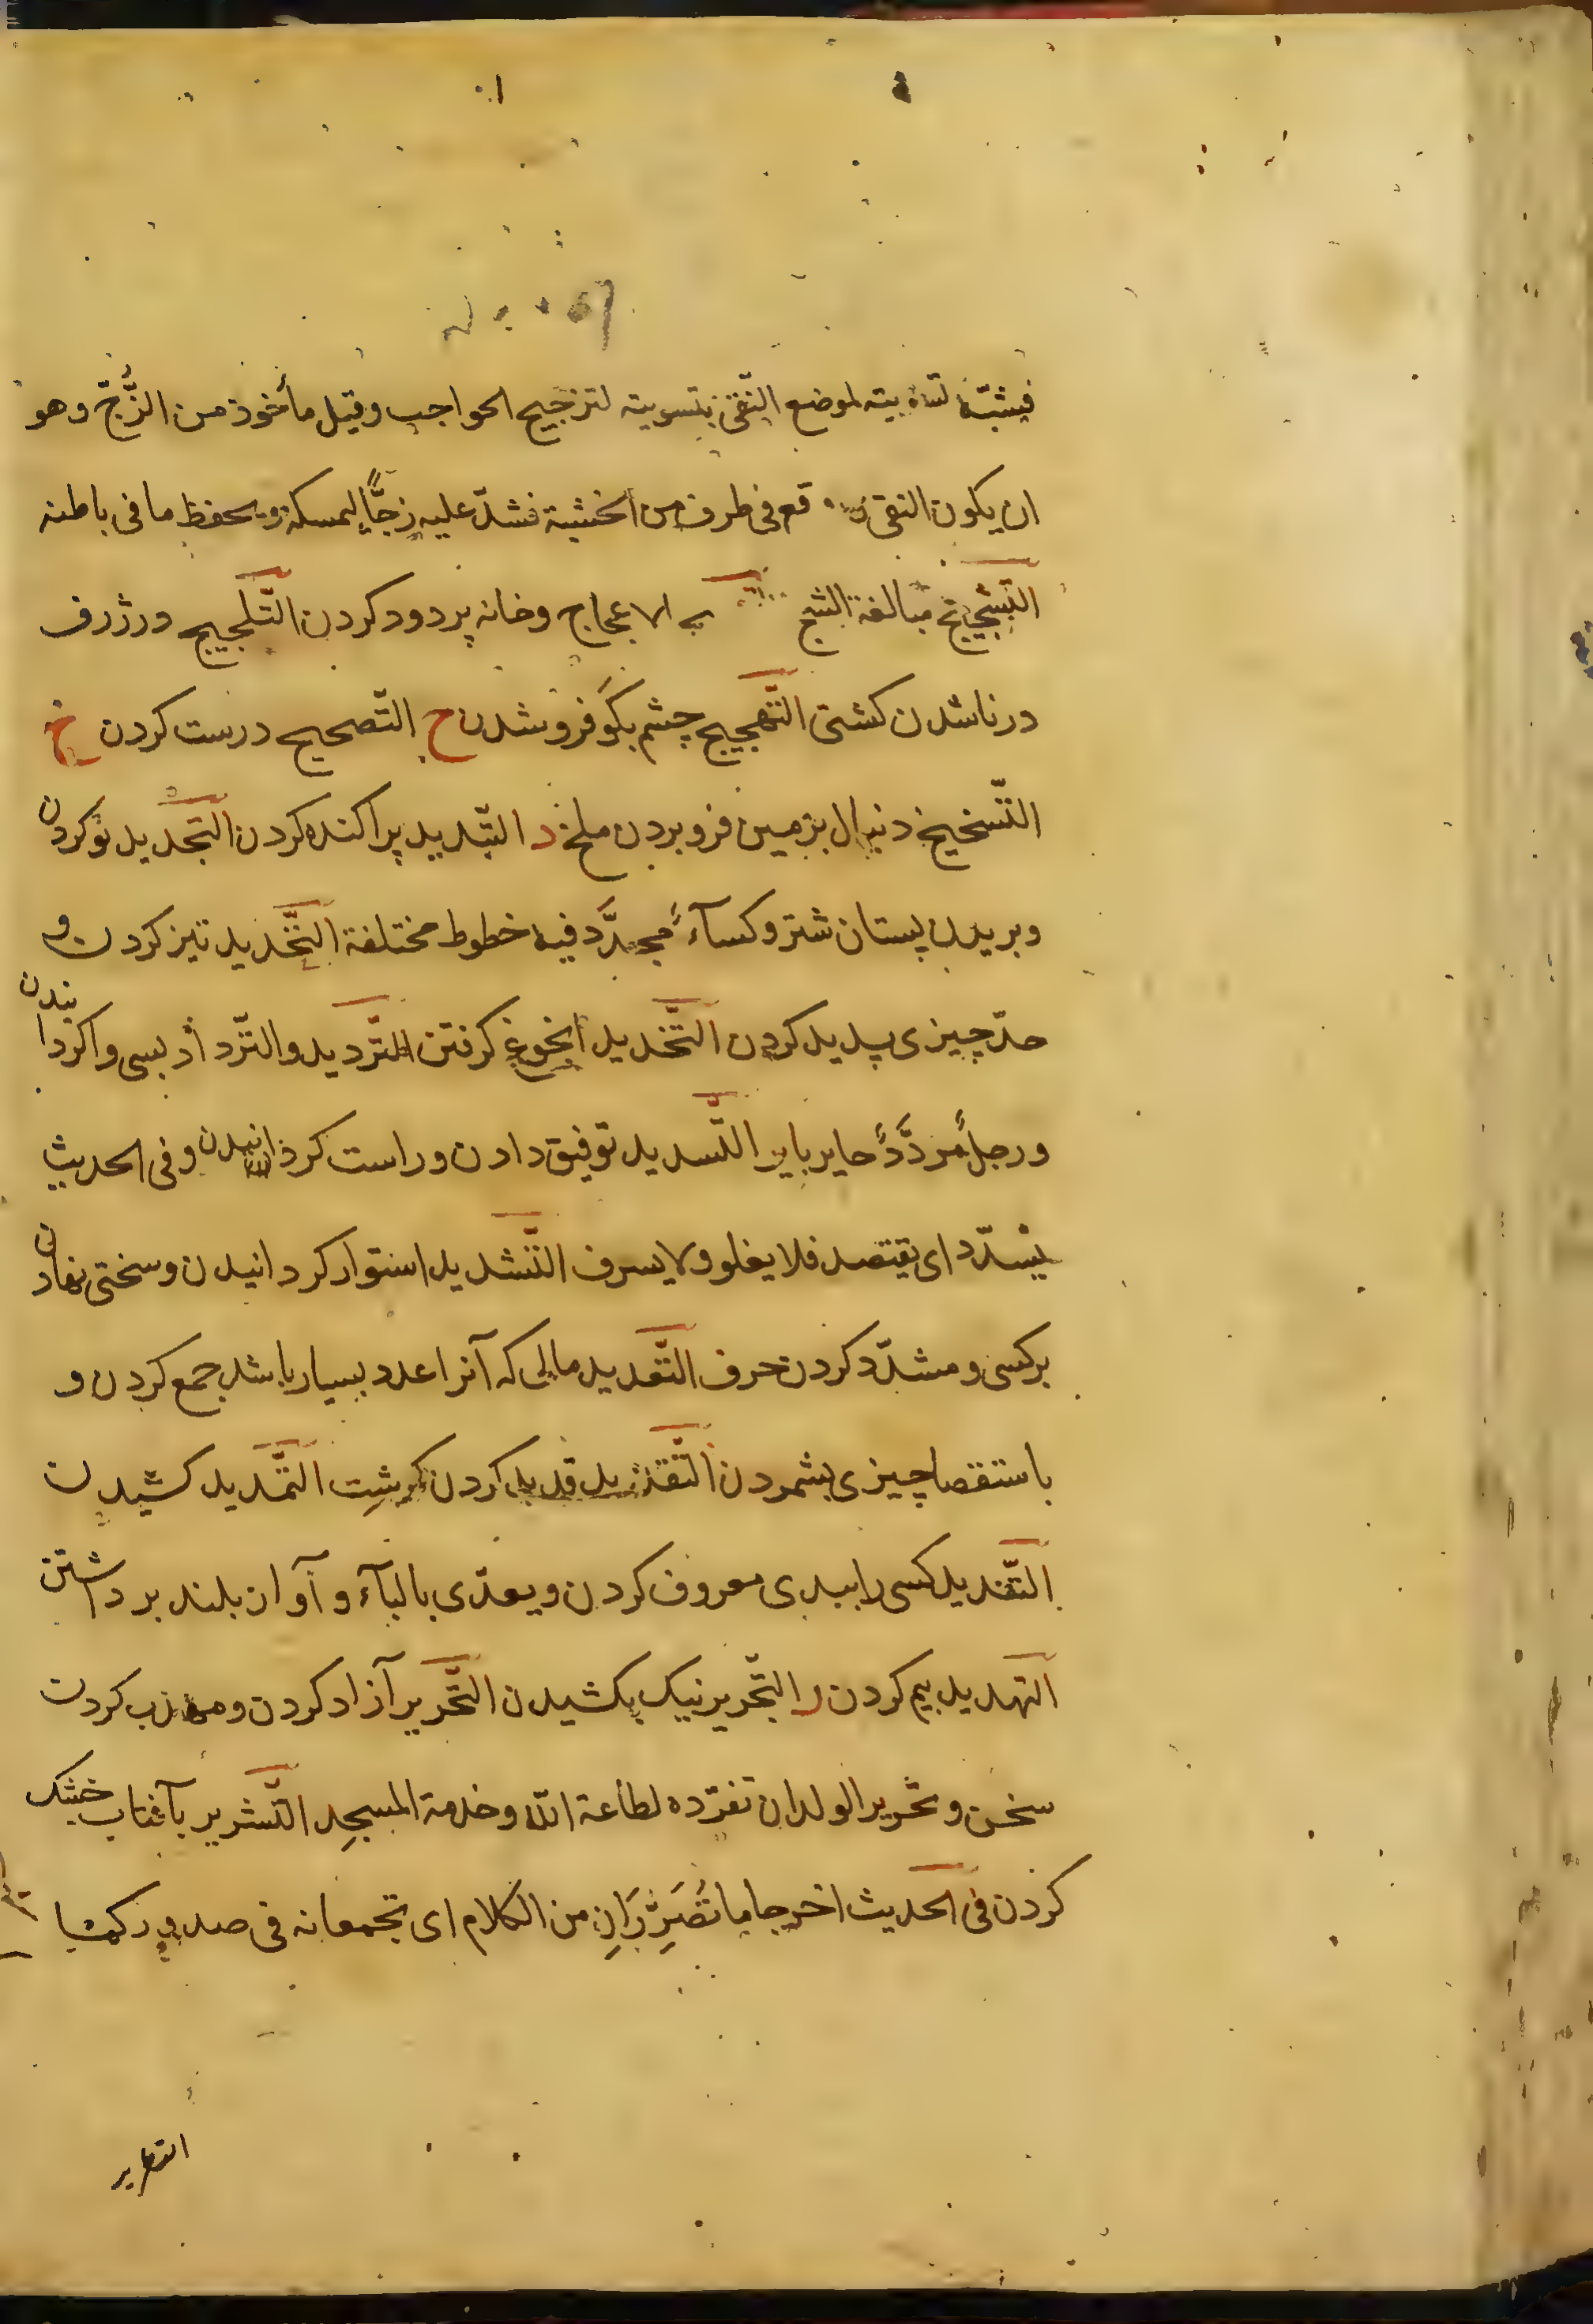 فيشبّه لتسويته لموضع النّقى بتسويته لتزجيج الحواجب وقيل مأخوذ من الزُّجّ وهو
ان يكون النقى قع فى طرف من الخشبة فشدّ عليه زجًّا ليمسكه ويحفظ ما فى باطنه
التّشجيج مبالغة الشج الاعجاج وخانه پر دود كردن التّلجيج در ژرف
درنا شدن كشتى التّهجيج چشم بكَو فرو شدن ح التّصحيح درست كردن خ
التّسخيخ دنبال بزمين فرو بردن ملخ د التّبديد پراكنده كردن التّجديد نو كردن
و بريدن پستان شتر و كسآءٌ مجدَّد فيه خطوط مختلفة التّحديد تيز كردن و
حدّ چيزى پديد كردن التّخديد انجوغ گرفتن التّرديد والتّرداد بسى واگردانيدن
ورجلٌ مردَّدٌ حاير باير التّسديد توفيق دادن و راست كردانيدن وفى الحديث
يسدّد اى يقتصد فلا يغلو ولا يسرف التّشديد استوار كردانيدن و سختى نهادن
بركسى و مشدّد كردن حرف التّعديد مالى كه آنرا عدد بسيار باشد جمع كردن و
باستقصا چيزى بشمردن التّقديد قديد كردن گوشت التّمديد كشيدن
التّنديد كسى را ببدى معروف كردن ويعدّى بالبآء و آواز بلند برداشتن
التهديد بيم كردن ر التّجرير نيك بكشيدن التّحرير آزاد كردن و مهذب كردن
سخن و تحرير الولد ان تفرّده لطاعة اللّه وخدمة المسجد التّشرير بآفتاب خشك
كردن فى الحديث اخرجا ما تُصَرِّرَانِ من الكلام اى تجمعانه فى صدوركما
التطرير